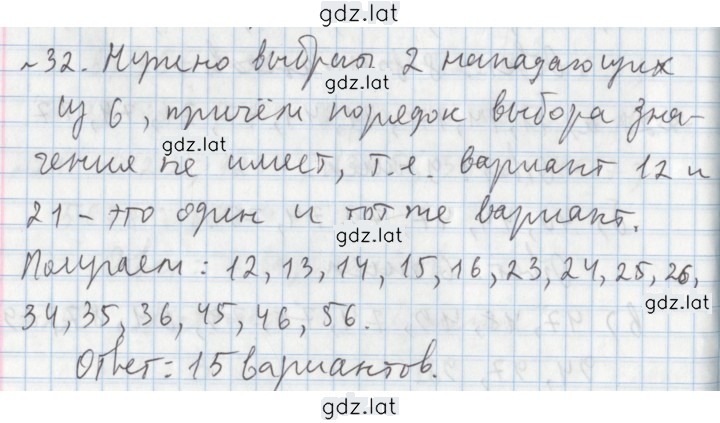 gdz.lat
№32. Нужно выбрать 2 нападающих
gdz.lat
из 6, причём порядок выбора зна-
gdz.lat
чения не имеет, т.е. вариант 12 и
21 - это один и тот же вариант.
gdz.lat
Получаем: 12, 13, 14, 15, 16, 23, 24, 25, 26,
gdz.lat
34, 35, 36, 45, 46, 56.
Ответ: 15 вариантов.
gdz.lat
gdz.lat